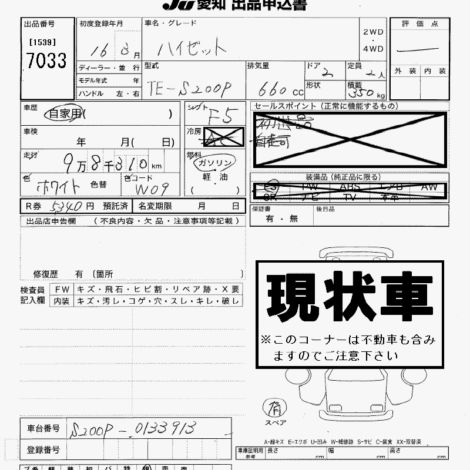 JU 愛知 出品申込書
出品番号 初度登録年月 車名・グレード 2WD・4WD 評価点
[1539]
7033
16年3月 ハイゼット
ディーラー・並行 型式 排気量 ドア 定員 外装 内装
モデル年式 年 形状 積載
ハンドル 左・右 TE-S200P 660cc 2 2人 350kg
車歴 自家用( ) シフト F5 セールスポイント(正常に機能するもの)
車検 年 月( )日 冷房
走行 9万8千310km 燃料 ガソリン・軽油( )
色 ホワイト 色替 色コード W09 装備品(純正品に限る)
PW ABS エアB AW
ナビ TV
R券 5340円 預託済 名変期限 月 日 保証書 後日品
有・無
出品店申告欄(不良内容・欠品・注意事項等記載)
修復歴 有(箇所 )
検査員記入欄 FW キズ・飛石・ヒビ割・リペア跡・X要
内装 キズ・汚レ・コゲ・穴・スレ・キレ・破レ
現状車
※このコーナーは不動車も含みますのでご注意下さい
有
スペア
A-線キズ E-エクボ U-凹み W-補修跡 S-サビ C-腐食 XX-交換済
車台番号 S200P-0133913
登録番号
車庫証明用参考 長さ cm 幅 cm 高さ cm